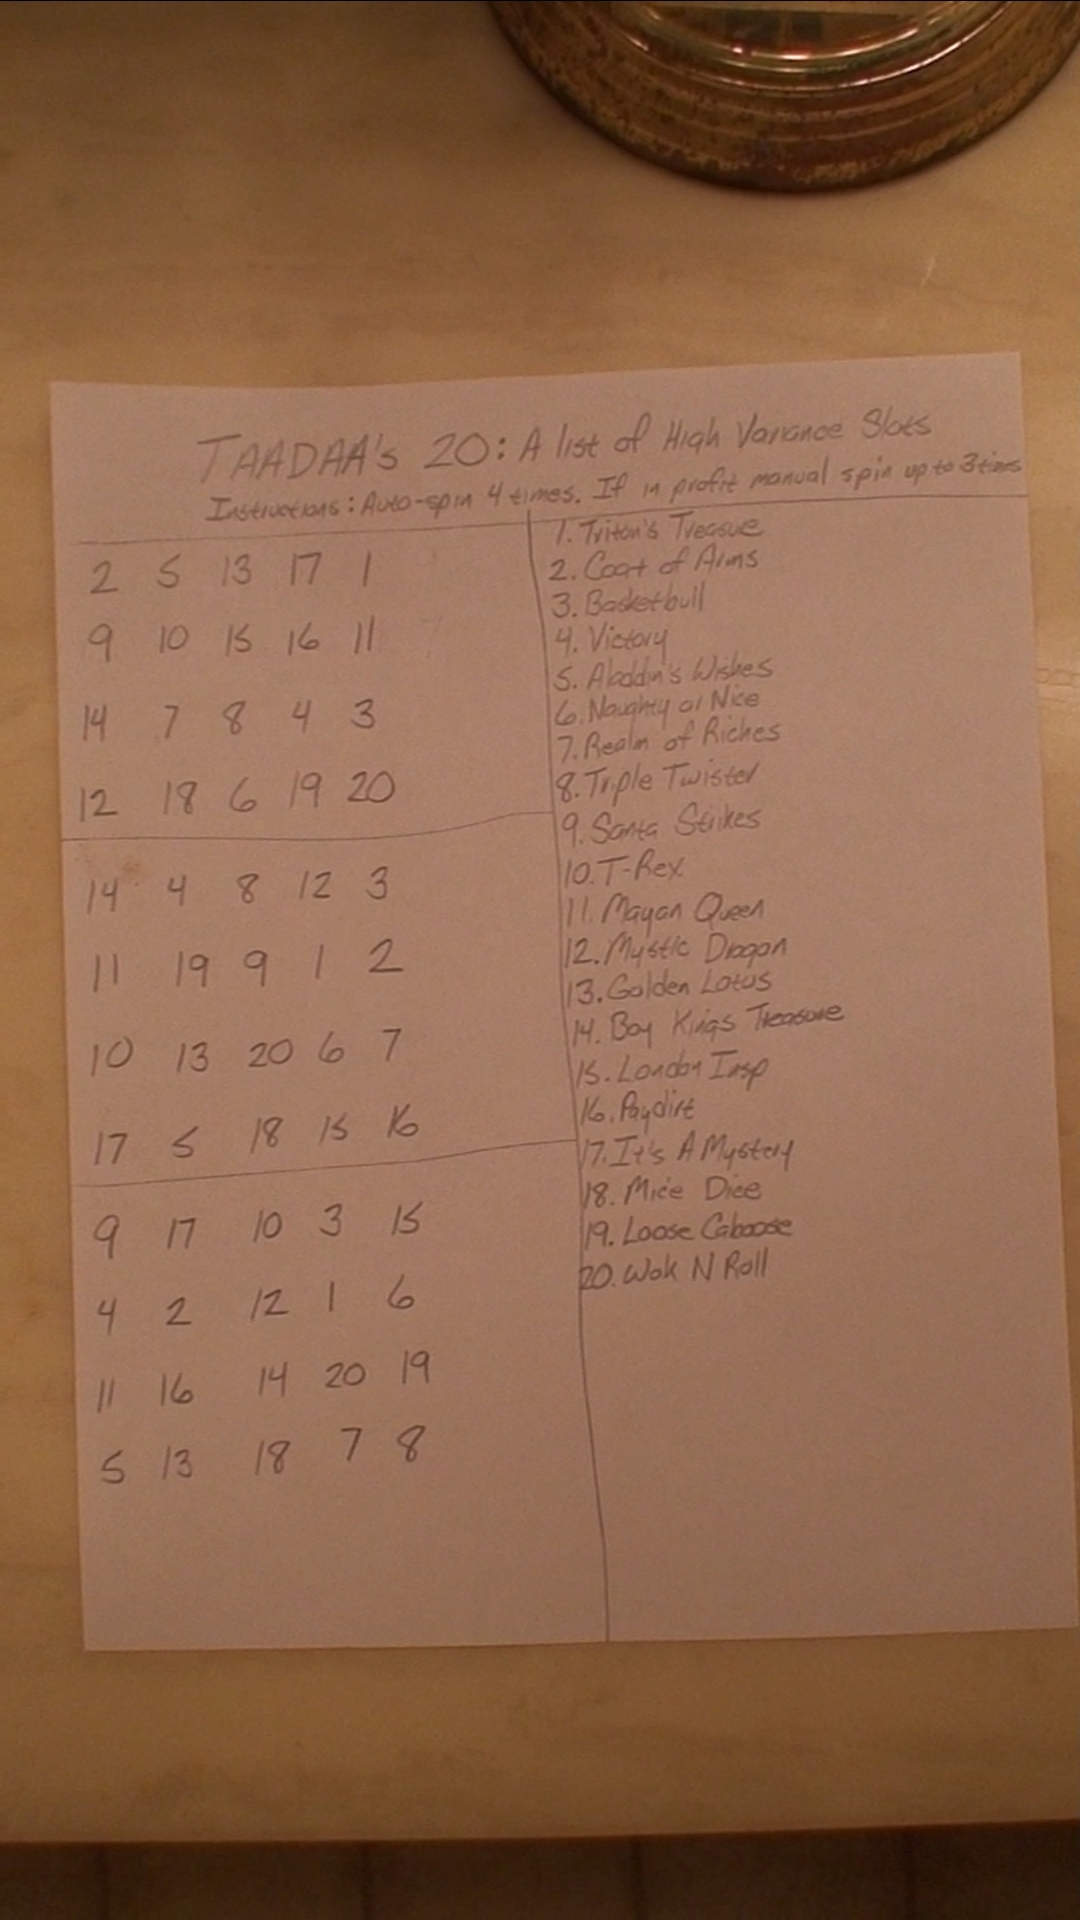 TAADAA's 20: A list of High Variance Slots
Instructions: Auto-spin 4 times. If in profit manual spin up to 3 times
2 5 13 17 1
9 10 15 16 11
14 7 8 4 3
12 18 6 19 20
14 4 8 12 3
11 19 9 1 2
10 13 20 6 7
17 5 18 15 16
9 17 10 3 15
4 2 12 1 6
11 16 14 20 19
5 13 18 7 8
1. Triton's Treasure
2. Coat of Arms
3. Basketbull
4. Victory
5. Aladdin's Wishes
6. Naughty or Nice
7. Realm of Riches
8. Triple Twister
9. Santa Strikes
10. T-Rex
11. Mayan Queen
12. Mystic Dragon
13. Golden Lotus
14. Boy Kings Treasure
15. London Insp
16. Paydirt
17. It's A Mystery
18. Mice Dice
19. Loose Caboose
20. Wok N Roll